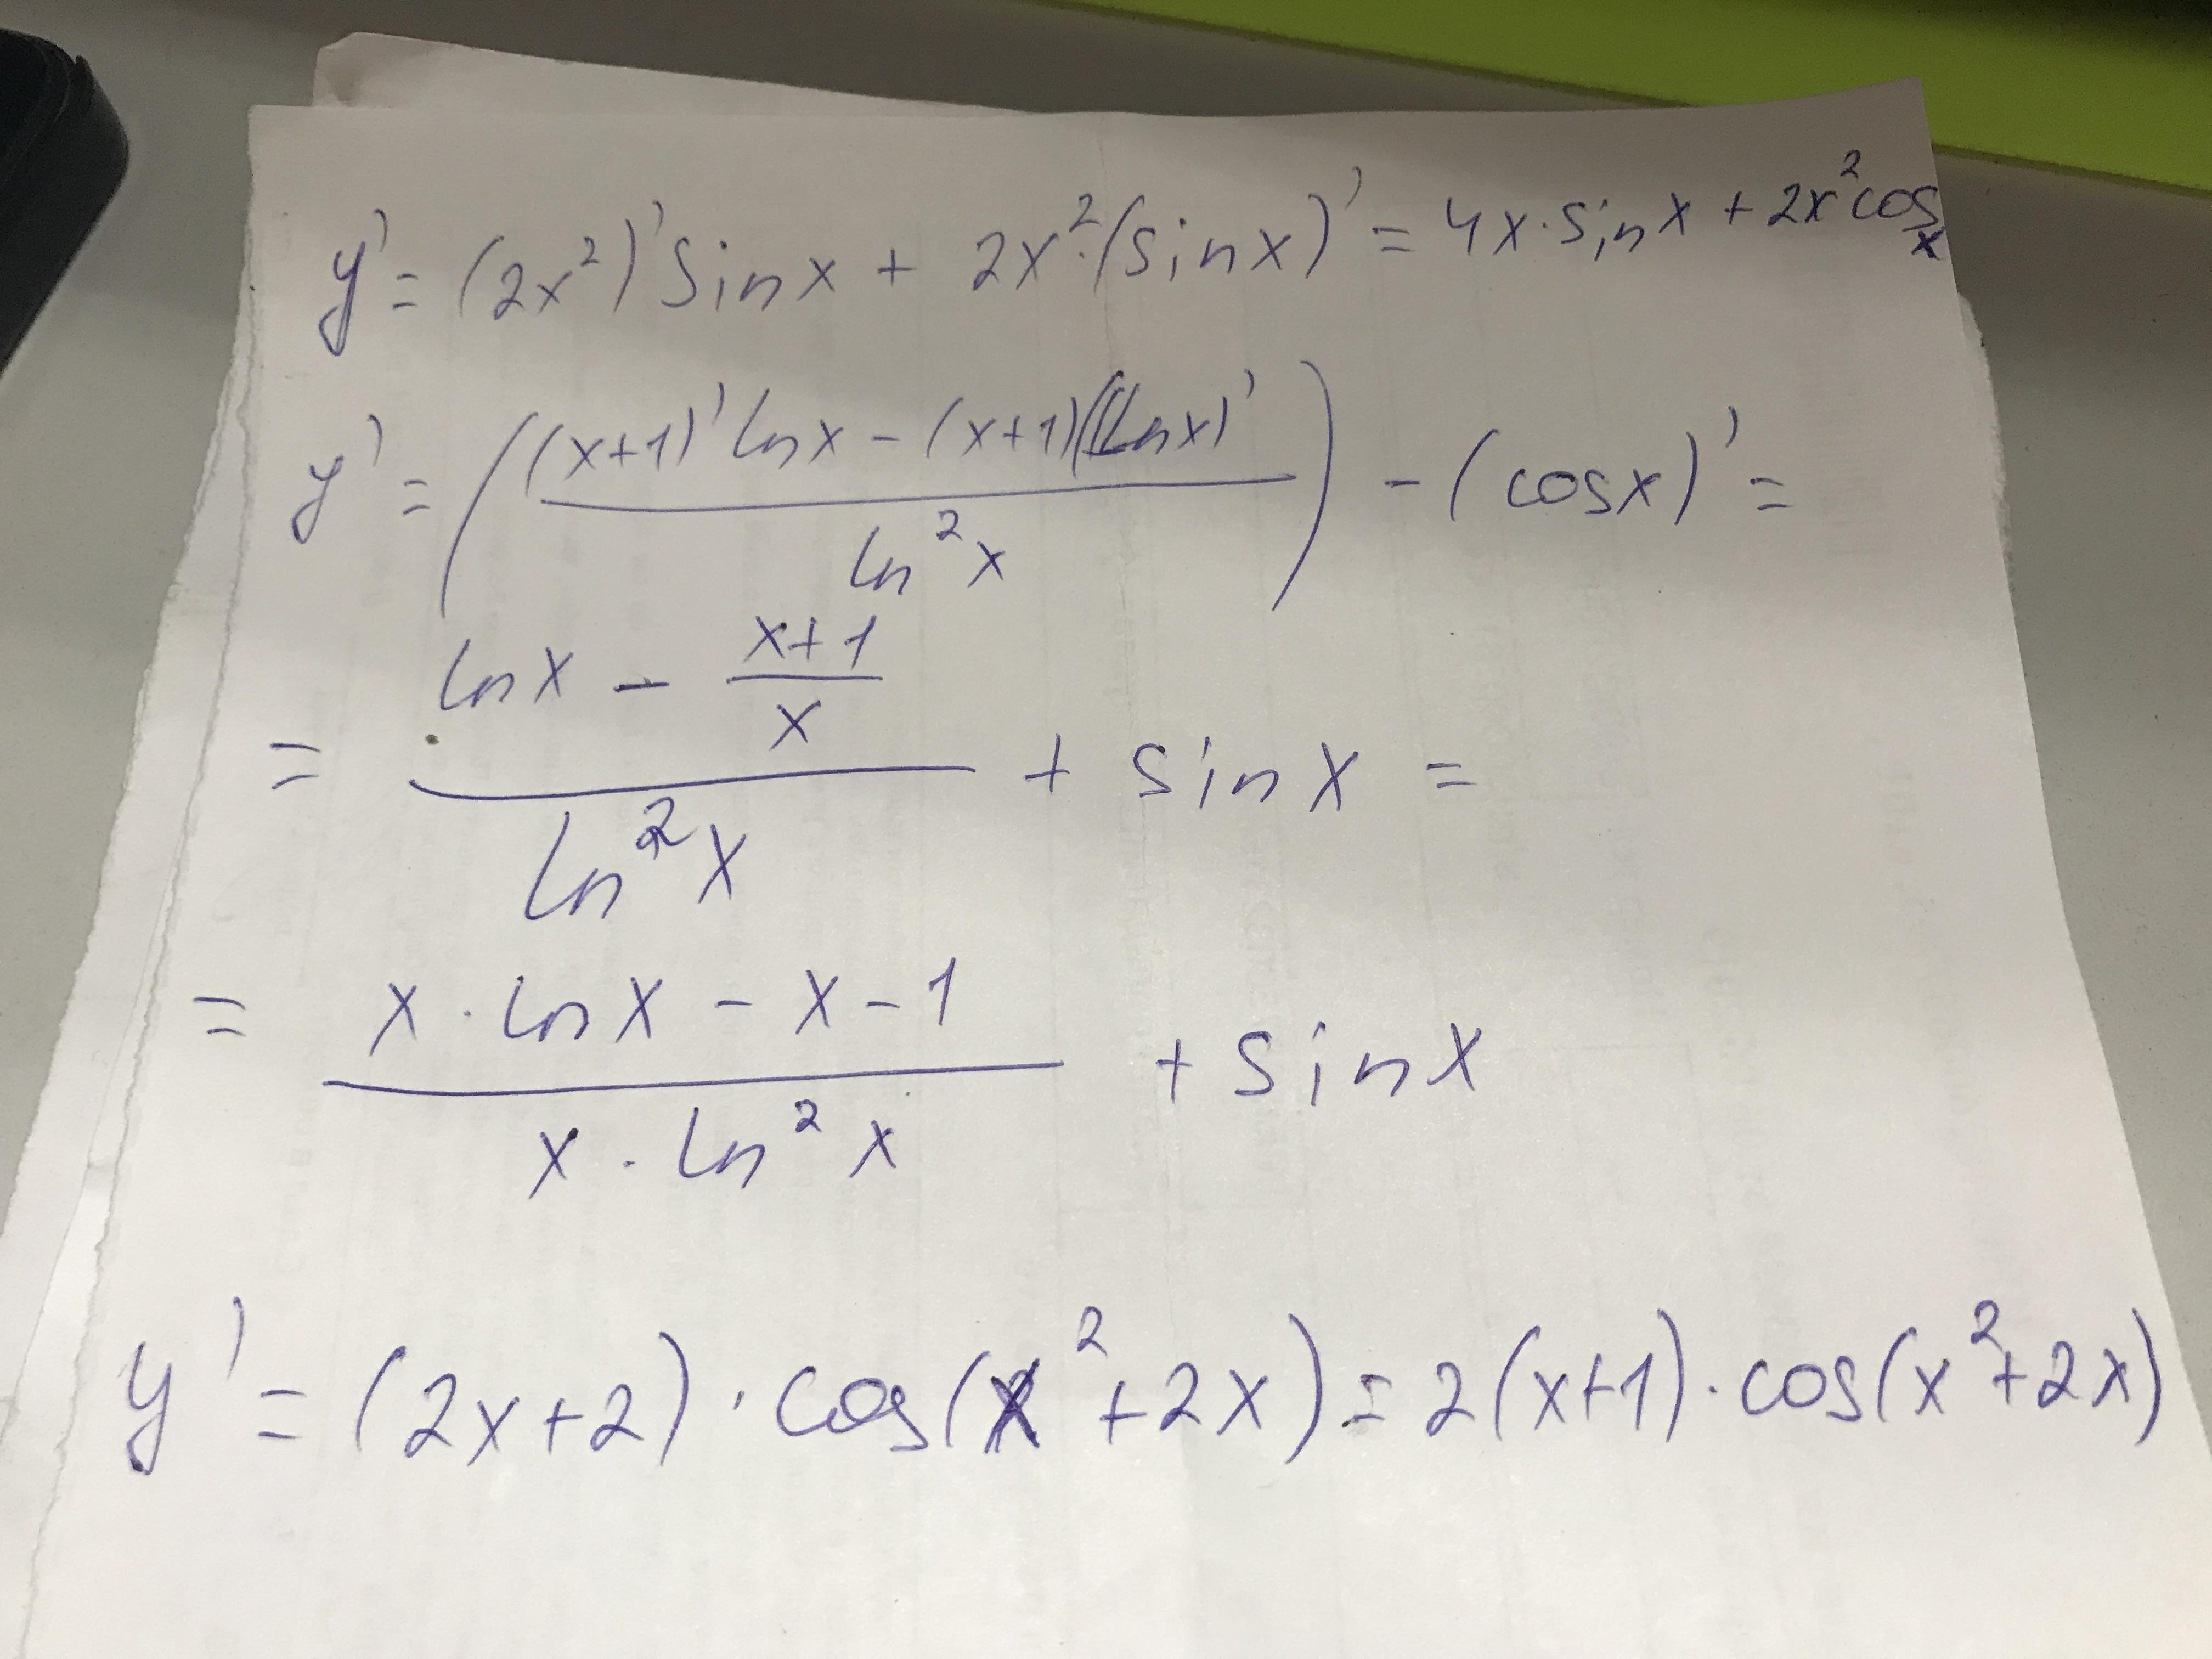 y' = (2x²)' sin x + 2x² · (sin x)' = 4x · sin x + 2x² cos x
y' = (((x+1)' ln x - (x+1)(ln x)') / (ln² x)) - (cos x)' =
= (ln x - (x+1)/x) / (ln² x) + sin x =
= (x · ln x - x - 1) / (x · ln² x) + sin x
y' = (2x+2) · cos(x² + 2x) = 2(x+1) · cos(x² + 2x)